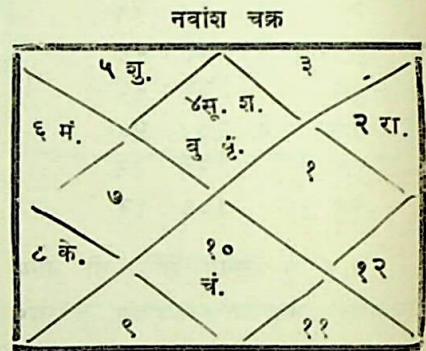 नवांश चक्र
५ शु.
३
४सू. श.
वु वृं.
६ मं.
२ रा.
७
१
८ के.
१०
चं.
१२
९
११